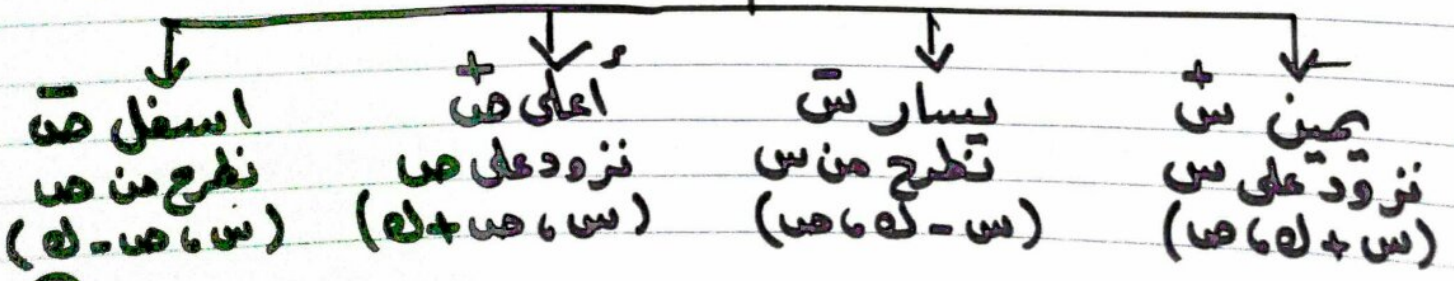 يمين س⁺
نزود على س
(س + ك ، ص)
يسار س⁻
نطرح من س
(س - ك ، ص)
أعلى ص⁺
نزود على ص
(س ، ص + ك)
اسفل ص⁻
نطرح من ص
(س ، ص - ك)